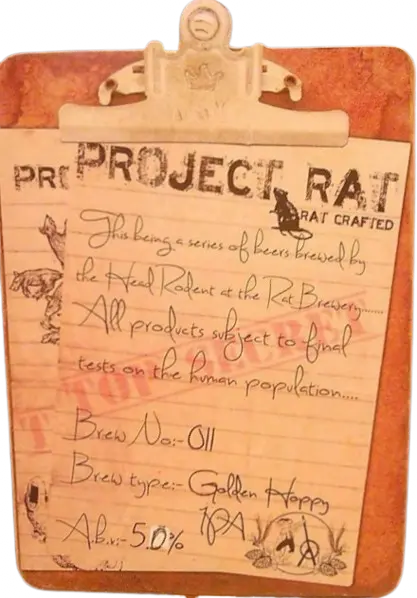 PROJECT RAT
PRO
RAT CRAFTED
This being a series of beers brewed by
the Head Rodent at the Rat Brewery.......
All products subject to final
tests on the human population....
TOP SECRET
T
Brew No:- 011
Brew type:- Golden Hoppy
IPA
A.b.v:- 5.0%